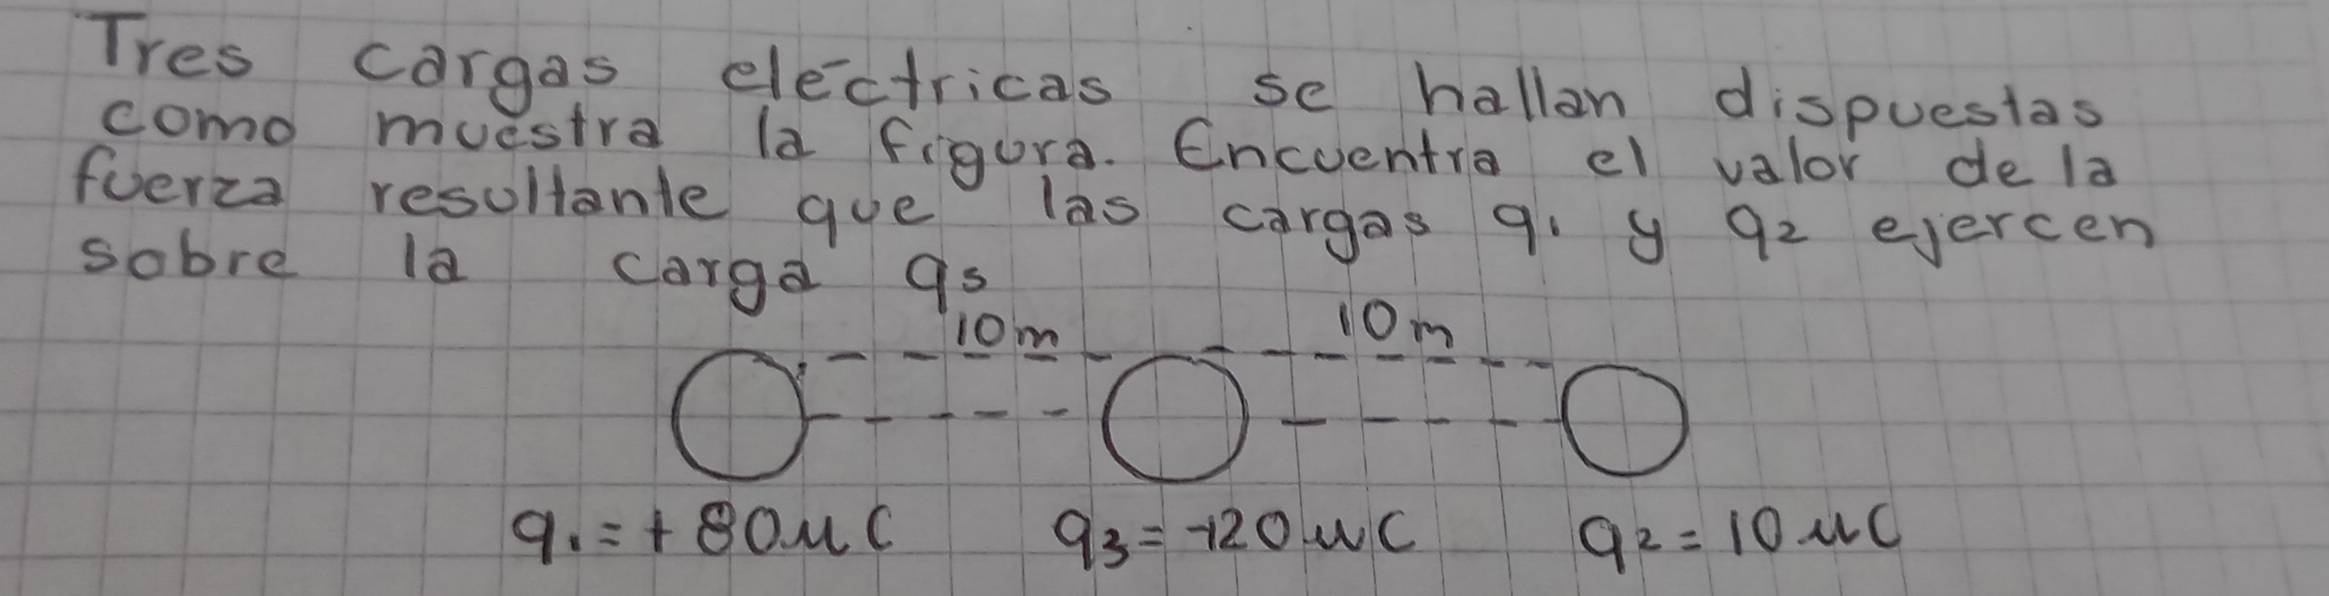 Tres cargas eléctricas se hallan dispuestas
como muestra la figura. Encuentra el valor de la
fuerza resultante que las cargas q1 y q2 ejercen
sobre la carga q3
10m 10m
q1 = +80μC q3 = -120μC q2 = 10μC